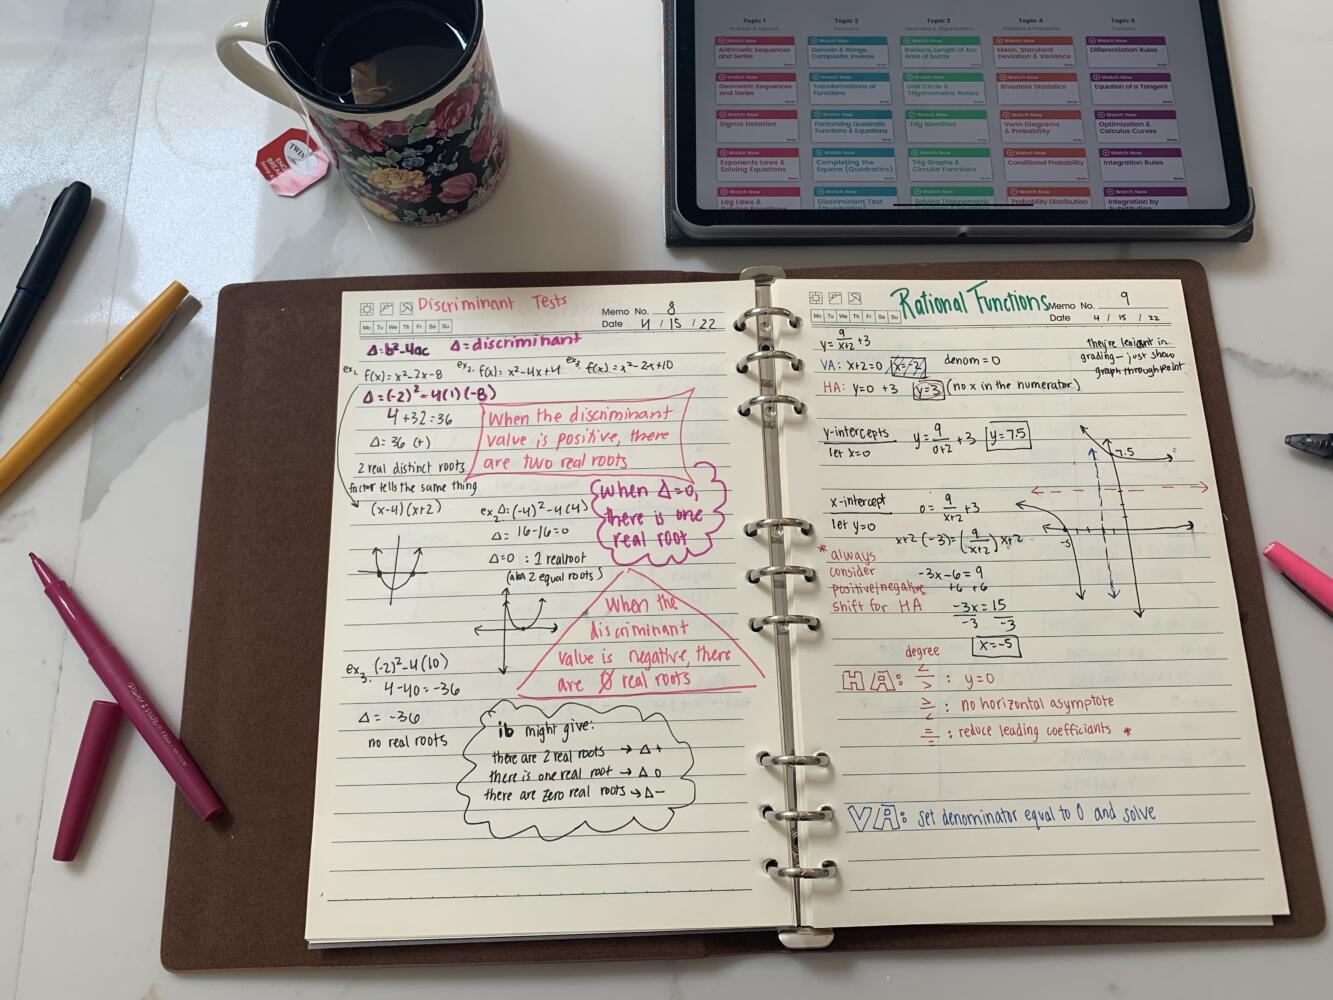 Topic 1
Number & Algebra
Watch Now
Arithmetic Sequences
and Series
Watch Now
Geometric Sequences
and Series
Watch Now
Sigma Notation
Watch Now
Exponents Laws &
Solving Equations
Watch Now
Log Laws &
Solving Equations
Topic 2
Functions
Watch Now
Domain & Range,
Composite, Inverse
Watch Now
Transformations of
Functions
Watch Now
Factorising Quadratic
Functions & Equations
Watch Now
Completing the
Square (Quadratics)
Watch Now
Discriminant Test
(Quadratics)
Topic 3
Geometry & Trigonometry
Watch Now
Radians, Length of Arc,
Area of Sector
Watch Now
Unit Circle &
Trigonometric Ratios
Watch Now
Trig Identities
Watch Now
Trig Graphs &
Circular Functions
Watch Now
Solving Trigonometric
Topic 4
Statistics & Probability
Watch Now
Mean, Standard
Deviation & Variance
Watch Now
Bivariate Statistics
Watch Now
Venn Diagrams
& Probability
Watch Now
Conditional Probability
Watch Now
Probability Distribution
Topic 5
Calculus
Watch Now
Differentiation Rules
Watch Now
Equation of a Tangent
Watch Now
Optimization &
Calculus Curves
Watch Now
Integration Rules
Watch Now
Integration by
Substitution
TWIN
ENG
BREA
Discriminant Tests
Memo No. 8
Mo Tu We Th Fr Sa Su
Date 4 / 15 / 22
Δ=b²-4ac Δ=discriminant
ex1. f(x)=x²-2x-8 ex2. f(x)=x²-4x+4 ex3. f(x)=x²-2x+10
Δ=(-2)²-4(1)(-8)
4+32=36
Δ=36 (+)
2 real distinct roots
factor tells the same thing
(x-4)(x+2)
When the discriminant
value is positive, there
are two real roots
ex2 Δ=(-4)²-4(4)
Δ= 16-16=0
Δ=0 : 1 real root
(aka 2 equal roots)
when Δ=0,
there is one
real root
When the
discriminant
value is negative, there
are 0 real roots
ex3. (-2)²-4(10)
4-40=-36
Δ= -36
no real roots
ib might give:
there are 2 real roots → Δ+
there is one real root → Δ 0
there are zero real roots → Δ-
Rational Functions
Memo No. 9
Mo Tu We Th Fr Sa Su
Date 4 / 15 / 22
y= 9/x+2 +3
VA: x+2=0 x=-2 denom=0
HA: y=0 +3 y=3 (no x in the numerator)
they're lenient in
grading—just show
graph through point
y-intercepts
let x=0
y= 9/0+2 +3 y=7.5
7.5
-5
x-intercept
let y=0
0= 9/x+2 +3
x+2 (-3)=(9/x+2) x+2
-3x-6=9
+6 +6
-3x=15
-3 -3
x=-5
* always
consider
positive/negative
shift for HA
degree
HA: < / > : y=0
> / < : no horizontal asymptote
= / = : reduce leading coefficients *
VA: set denominator equal to 0 and solve
Paper:Mate